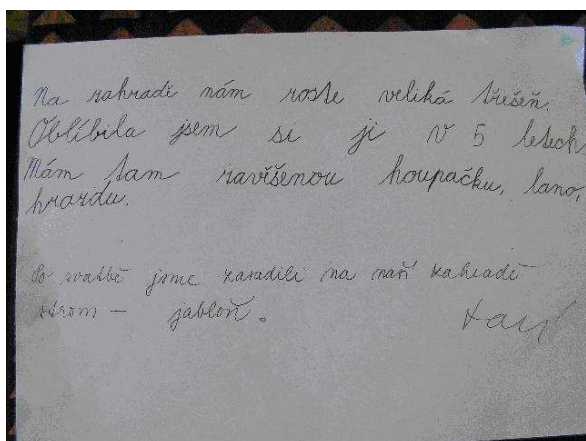 Na zahradě nám roste veliká třešeň.
Oblíbila jsem si ji v 5 letech.
Mám tam zavěšenou houpačku, lano,
hrazdu.
Po svatbě jsme zasadili na naší zahradě
strom – jabloň.